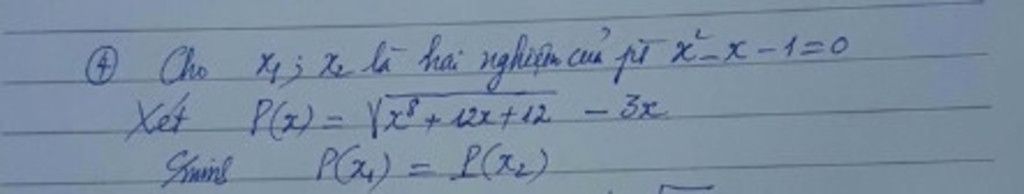 ④ Cho x₁; x₂ là hai nghiệm của pt x² - x - 1 = 0
Xét P(x) = √(x⁸ + 12x + 12) - 3x
P(x₁) = P(x₂)